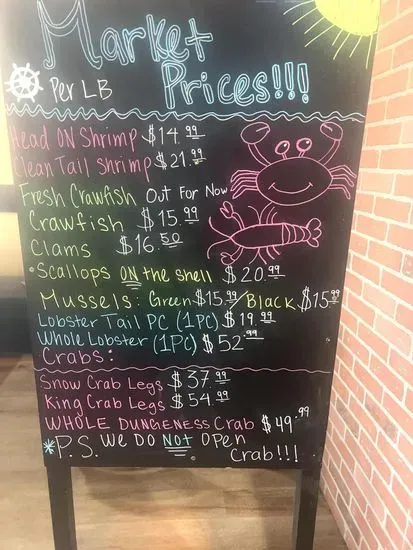 Market
Prices!!!
Per LB
Head ON Shrimp $14.99
Clean Tail shrimp $21.99
Fresh Crawfish Out For Now
Crawfish $15.99
Clams $16.50
•Scallops ON the shell $20.99
Mussels: Green $15.99 Black $15.99
Lobster Tail PC (1PC) $19.99
Whole Lobster (1PC) $52.99
Crabs:
Snow Crab Legs $37.99
King Crab Legs $54.99
WHOLE DUNGENESS Crab $49.99
*P.S. We DO NOT Open
Crab!!!